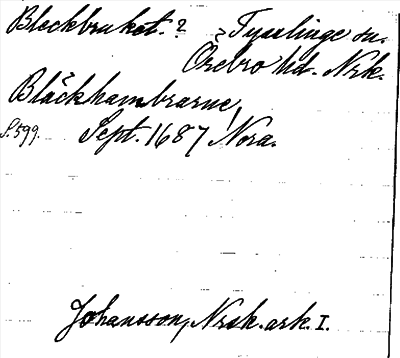 Bleckbruket. ? Tysslinge sn.
Örebro hd. Nrk.
Bläckhambrarne,
S. 599. Sept. 1687 Nora.
Johansson, Nrsk. ark. I.